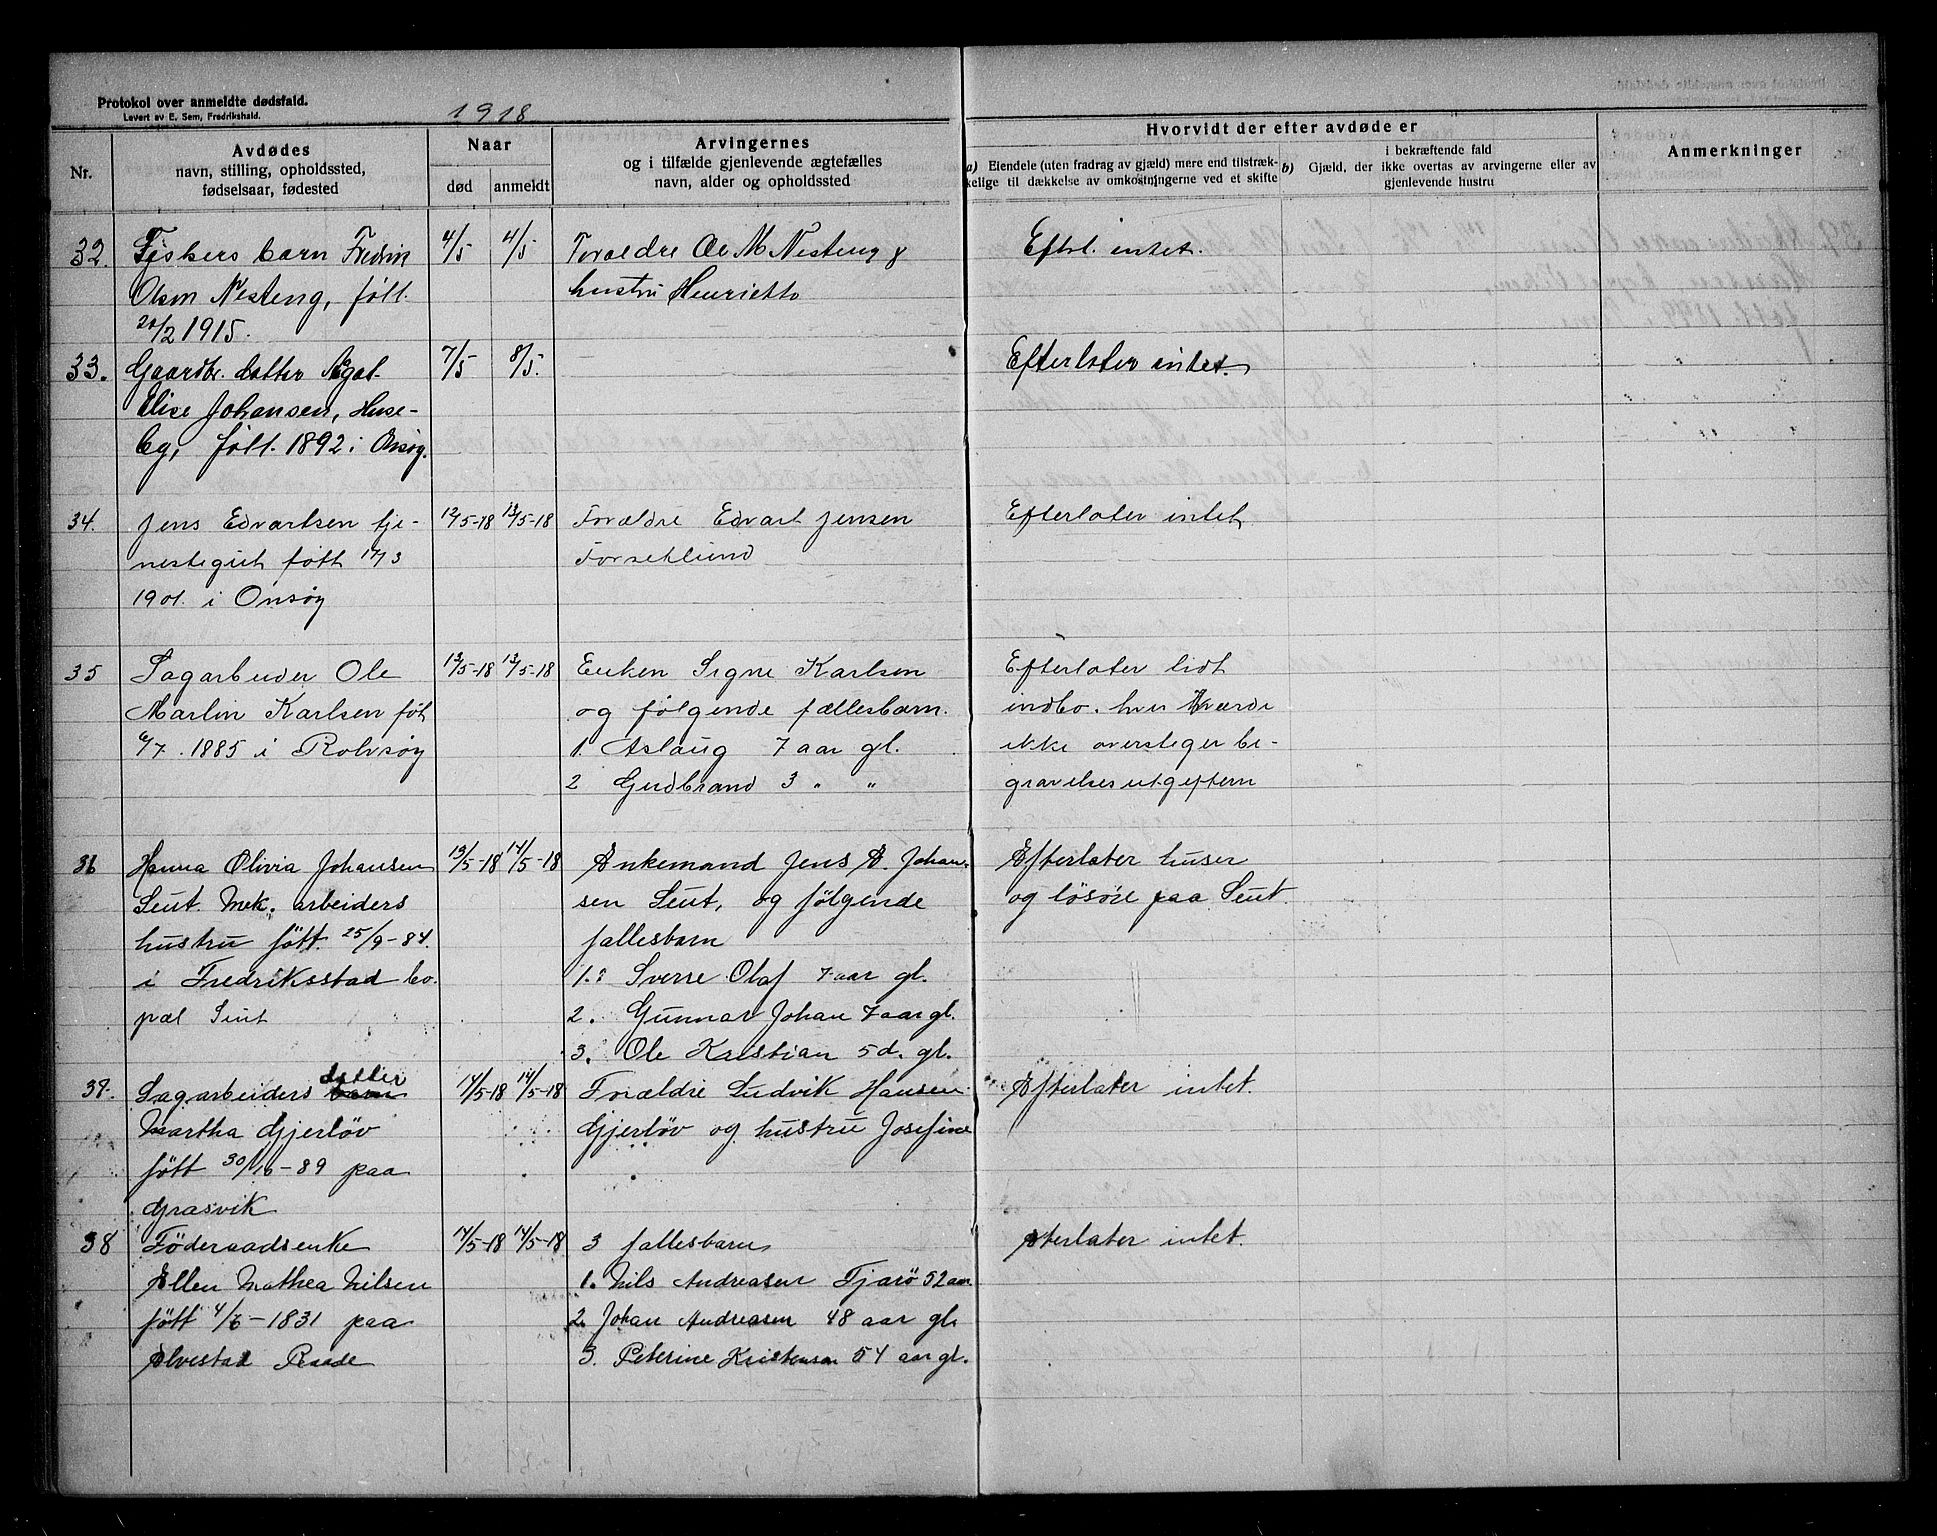 Protokol over anmeldte dødsfald.
Levert av E. Sem, Fredrikshald.
1918
Nr.
Avdødes
navn, stilling, opholdssted,
fødselsaar, fødested
Naar
død
anmeldt
Arvingernes
og i tilfælde gjenlevende ægtefælles
navn, alder og opholdssted
Hvorvidt der efter avdøde er
a) Eiendele (uten fradrag av gjæld) mere end tilstræk-
kelige til dækkelse av omkostningerne ved et skifte
i bekræftende fald
b) Gjæld, der ikke overtas av arvingerne eller av
gjenlevende hustru
Anmerkninger
32. Fiskers barn Fredrin 4/5 4/5 Foraldre Ole M Nesteng &
Olsen Nesteng, født hustru Henriette
20/2 1915.
Efterl. intet.
33. Gaardbr. datter Agat 7/5 8/5.
Elise Johansen, Huse-
by, født. 1892 i Onsøy.
Efterlater intet.
34. Jens Edvartsen tje- 12/5-18 13/5-18 Forældre Edvart Jensen
nestegut født 17/3 Torseklund
1901. i Onsøy
Efterlater intet
35 Sagarbeider Ole 12/5-18 13/5-18 Enken Signe Karlsen
Martin Karlsen føt og følgende fællesbarn.
6/7. 1885 i Rolvsøy 1. Aslaug 7 aar gl.
2 Gudbrand 3 " "
Efterlater lidt
indbo. hvis værde
ikke overstiger be-
gravelsesutgiftern
36 Hanna Olivia Johansen 13/5-18 14/5-18 Enkemand Jens A. Johan-
Lunt. Mek. arbeiders sen Lunt, og følgende
hustru fött. 25/9-84. fallesbarn
i Fredriksstad bo. 1. Sverre Olaf 7 aar gl.
pæl 2. Gunnar Johan 7 aar gl.
3. Ole Kristian 5 d. gl.
Efterlater huser
og løsøre paa
37. Sagarbeiders datter 14/5-18 14/5-18 Forældre Ludvik Hansen
Martha Gjerløv Gjerløv og hustru Josefine
fött 30/10-89 paa
Grasvik
Efterlater intet.
38 Föderaadsenke 14/5-18 14/5-18 3 fallesbarn
Ellen Mathea Nilsen 1. Nils Andreasen Tjarö 52 aar
fött 4/6-1831 paa 2. Johan Andreasen 48 aar gl.
Elvestad Raade 3. Peterine Kristensen 54 aar gl.
Efterlater intet.